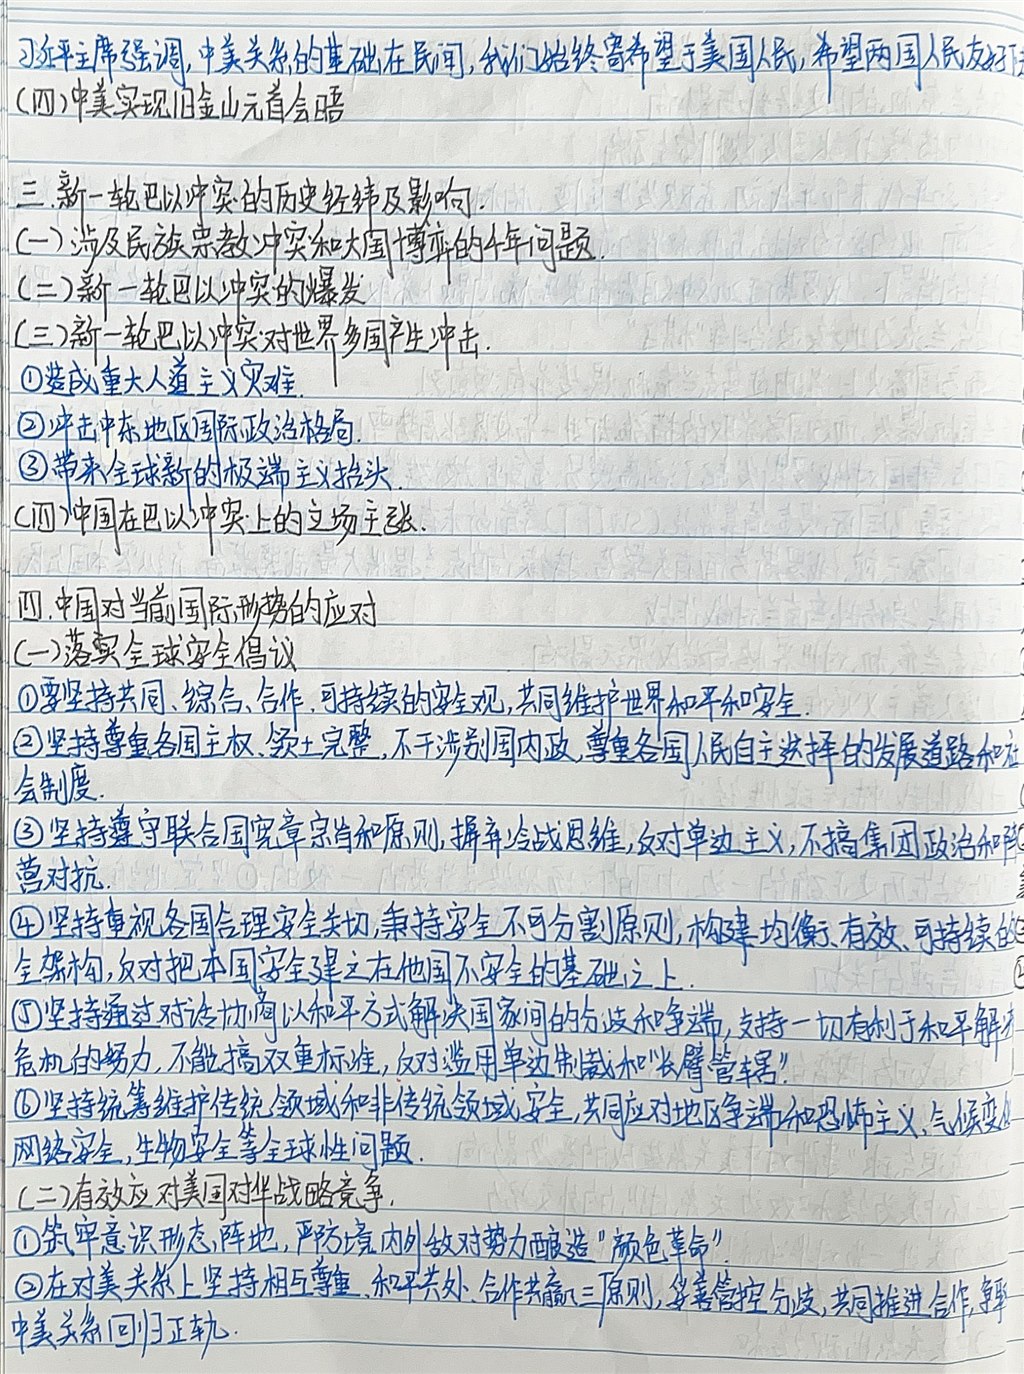 习近平主席强调,中美关系的基础在民间,我们始终寄希望于美国人民,希望两国人民友好
(四)中美实现旧金山元首会晤
三.新一轮巴以冲突的历史经纬及影响.
(一)涉及民族宗教冲突和大国博弈的千年问题.
(二)新一轮巴以冲突的爆发
(三)新一轮巴以冲突对世界多国产生冲击.
①造成重大人道主义灾难.
②冲击中东地区国际政治格局.
③带来全球新的极端主义抬头.
(四)中国在巴以冲突上的立场主张.
四.中国对当前国际形势的应对
(一)落实全球安全倡议
①要坚持共同、综合、合作、可持续的安全观,共同维护世界和平和安全.
②坚持尊重各国主权、领土完整,不干涉别国内政,尊重各国人民自主选择的发展道路和社
会制度.
③坚持遵守联合国宪章宗旨和原则,摒弃冷战思维,反对单边主义,不搞集团政治和阵
营对抗.
④坚持重视各国合理安全关切,秉持安全不可分割原则,构建均衡、有效、可持续的
全架构,反对把本国安全建立在他国不安全的基础之上.
⑤坚持通过对话协商以和平方式解决国家间的分歧和争端,支持一切有利于和平解决
危机的努力,不能搞双重标准,反对滥用单边制裁和"长臂管辖".
⑥坚持统筹维护传统领域和非传统领域安全,共同应对地区争端和恐怖主义、气候变化
网络安全,生物安全等全球性问题.
(二)有效应对美国对华战略竞争.
①筑牢意识形态阵地,严防境内外敌对势力酿造"颜色革命".
②在对美关系上坚持相互尊重、和平共处、合作共赢三原则,妥善管控分歧,共同推进合作,
中美关系回归正轨.